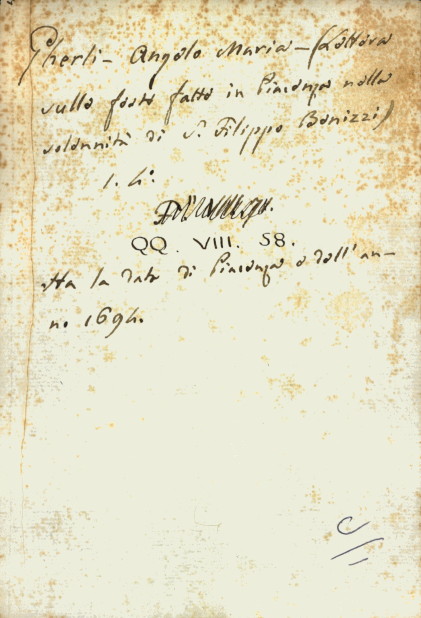 Gherli - Angelo Maria - (Lettera
sulle feste fatte in Piacenza nella
solennità di S. Filippo Benizzi)
1. 4°.
QQ. VIII. 58.
Ha la data di Piacenza e dell'an-
no 1694.
C